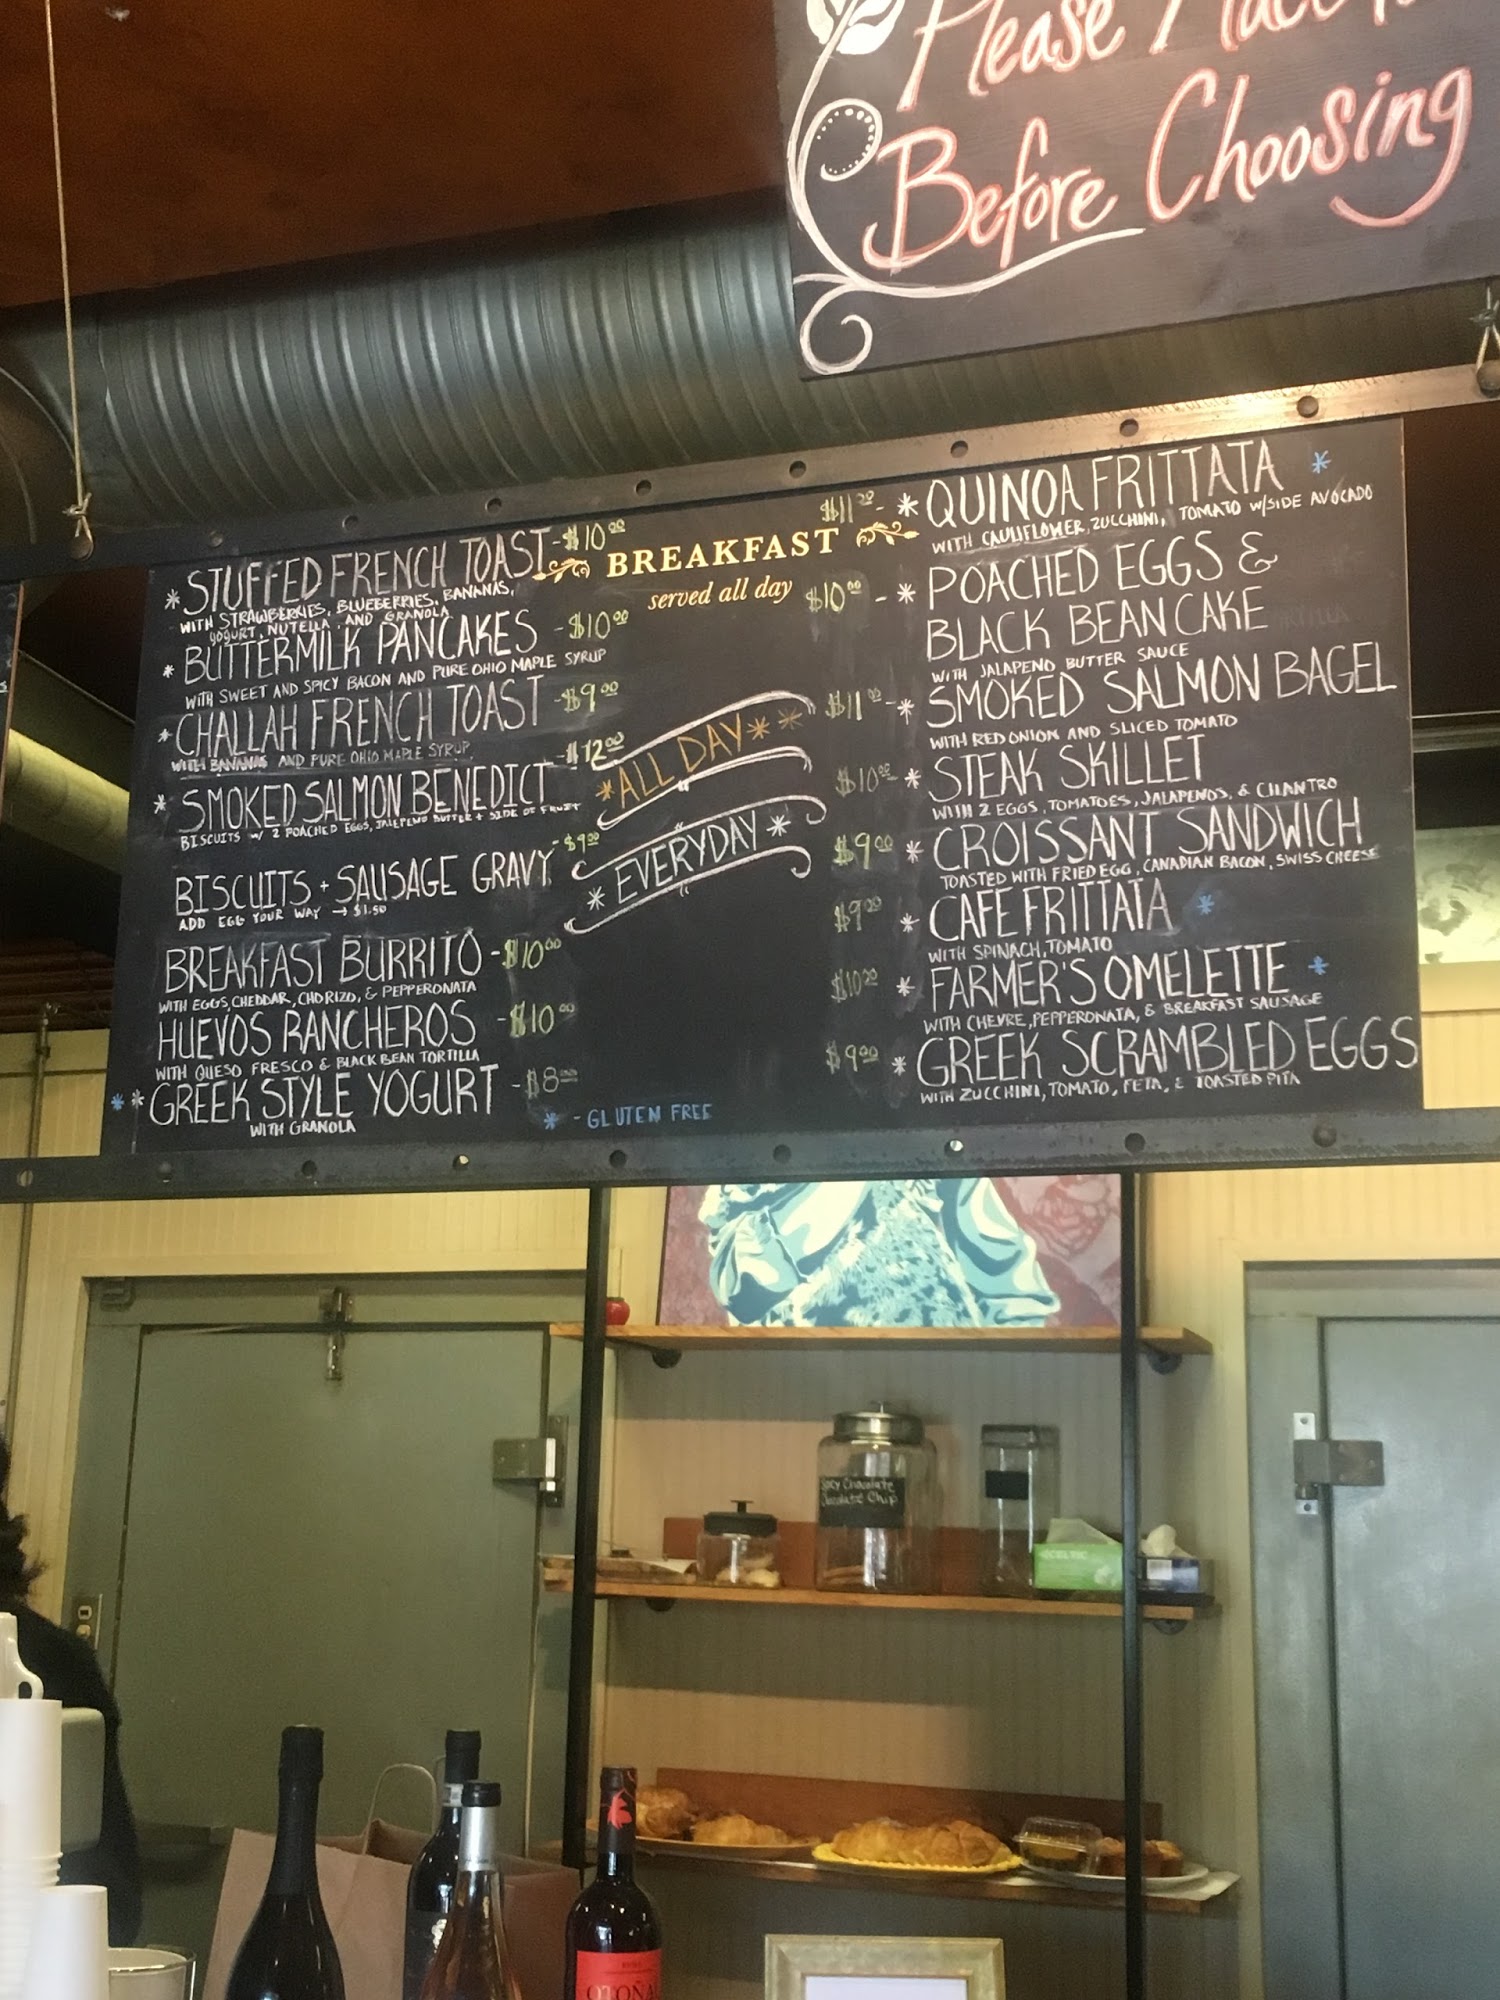 Please Place
Before Choosing
BREAKFAST
served all day
* STUFFED FRENCH TOAST - $10.00
WITH STRAWBERRIES, BLUEBERRIES, BANANAS,
YOGURT, NUTELLA, AND GRANOLA
* BUTTERMILK PANCAKES - $10.00
WITH SWEET AND SPICY BACON AND PURE OHIO MAPLE SYRUP
* CHALLAH FRENCH TOAST - $9.00
WITH BANANAS AND PURE OHIO MAPLE SYRUP
* SMOKED SALMON BENEDICT - $12.00
BISCUITS W/ 2 POACHED EGGS, JALEPENO BUTTER + SIDE OF FRUIT
BISCUITS + SAUSAGE GRAVY - $9.00
ADD EGG YOUR WAY → $1.50
BREAKFAST BURRITO - $10.00
WITH EGGS, CHEDDAR, CHORIZO, & PEPPERONATA
HUEVOS RANCHEROS - $10.00
WITH QUESO FRESCO & BLACK BEAN TORTILLA
* * GREEK STYLE YOGURT - $8.00
WITH GRANOLA
* ALL DAY * *
* EVERYDAY *
* - GLUTEN FREE
$11.00 - * QUINOA FRITTATA *
WITH CAULIFLOWER, ZUCCHINI, TOMATO W/SIDE AVOCADO
$10.00 - * POACHED EGGS &
BLACK BEAN CAKE
WITH JALAPENO BUTTER SAUCE
$11.00 - * SMOKED SALMON BAGEL
WITH RED ONION AND SLICED TOMATO
$10.00 * STEAK SKILLET
WITH 2 EGGS, TOMATOES, JALAPENOS, & CILANTRO
$9.00 * CROISSANT SANDWICH
TOASTED WITH FRIED EGG, CANADIAN BACON, SWISS CHEESE
$9.00 * CAFE FRITTATA *
WITH SPINACH, TOMATO
$10.00 * FARMER'S OMELETTE *
WITH CHEVRE, PEPPERONATA, & BREAKFAST SAUSAGE
$9.00 * GREEK SCRAMBLED EGGS
WITH ZUCCHINI, TOMATO, FETA, & TOASTED PITA
Spicy Chocolate
Chocolate Chip